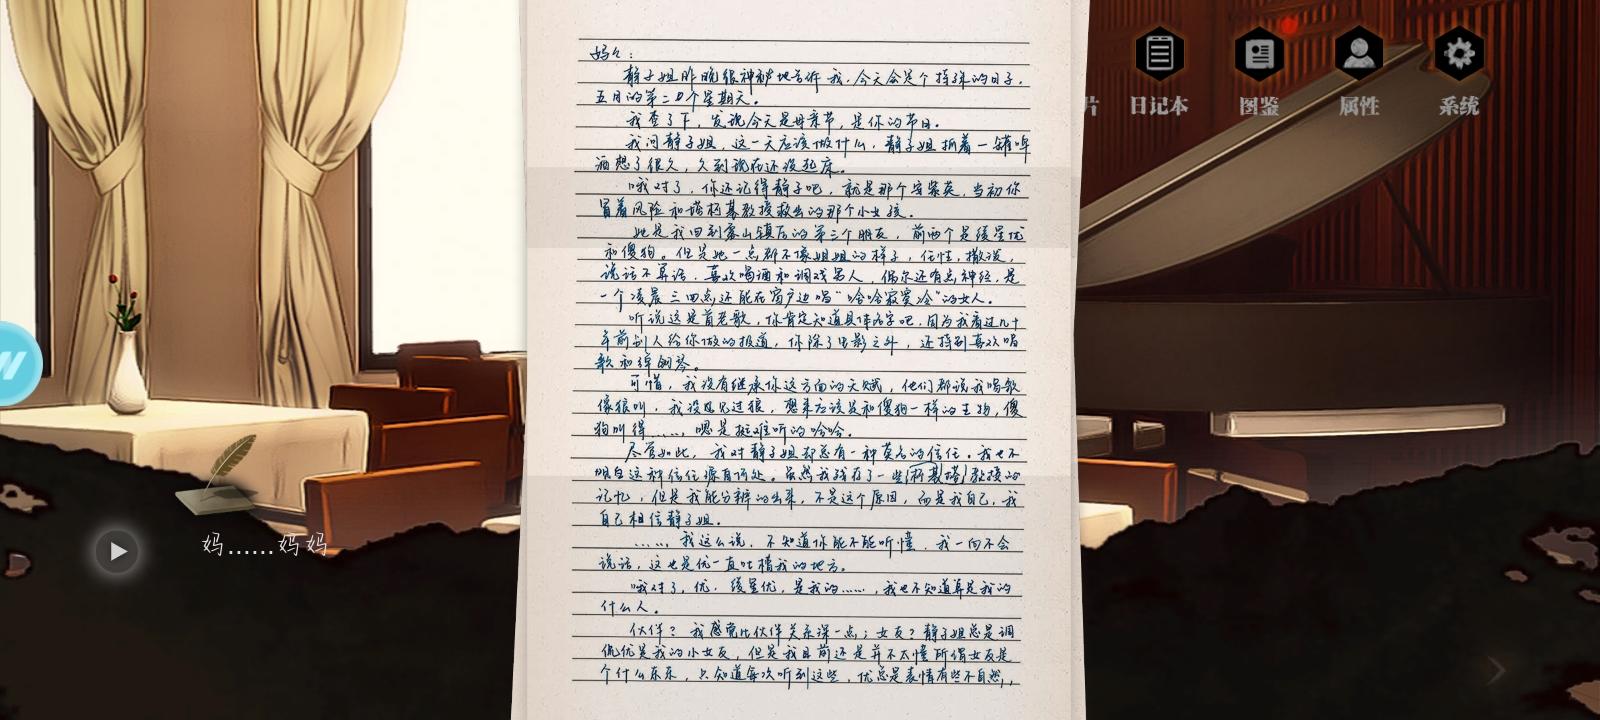 妈々：
静子姐昨晚很神秘地告诉我，今天会是个特殊的日子，
五月的第二个星期天。
我查了下，发现今天是母亲节，是你的节日。
我问静子姐，这一天应该做什么，静子姐抓着一罐啤
酒想了很久，久到现在还没起床。
哦对了，你还记得静子吧，就是那个安紫英，当初你
冒着风险和塔柯基教授救出的那个小女孩。
她是我回到寨山镇后的第三个朋友，前两个是缓星优
和傻狗。但是她一点都不像姐姐的样子，任性，撒泼，
说话不算话，喜欢喝酒和调戏男人，偶尔还有点神经，是
一个凌晨三四点还能在窗户边唱“哈哈寂寞冷”的女人。
听说这是首老歌，你肯定知道具体名字吧，因为我看过几十
年前别人给你做的报道，你除了电影之外，还特别喜欢唱
歌和弹钢琴。
可惜，我没有继承你这方面的天赋，他们都说我唱歌
像狼叫，我没见过狼，想来应该是和傻狗一样的生物，傻
狗叫得……，嗯是挺难听的哈哈。
尽管如此，我对静子姐却总有一种莫名的信任。我也不
明白这种信任源自何处。虽然我残存了一些柯基塔教授的
记忆，但是我能分辨的出来，不是这个原因，而是我自己，我
自己相信静子姐。
……，我这么说，不知道你能不能听懂，我一向不会
说话，这也是优一直吐槽我的地方。
哦对了，优，缓星优，是我的……，我也不知道算是我的
什么人。
伙伴？我感觉比伙伴关系深一点；女友？静子姐总是调
侃优是我的小女友，但是我目前还是并不太懂所谓女友是
个什么东东，只知道每次听到这些，优总是表情有些不自然，
片
日记本
图鉴
属性
系统
妈……妈妈